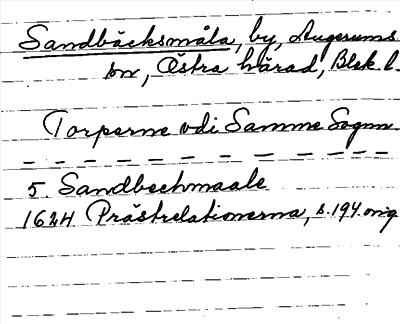 Sandbäcksmåla, by, Augerums
sn, Östra härad, Blek. l.
Torperne udi Samme Sognn
5. Sandbeckmaale
1624 Prästrelationerna, s. 194. orig